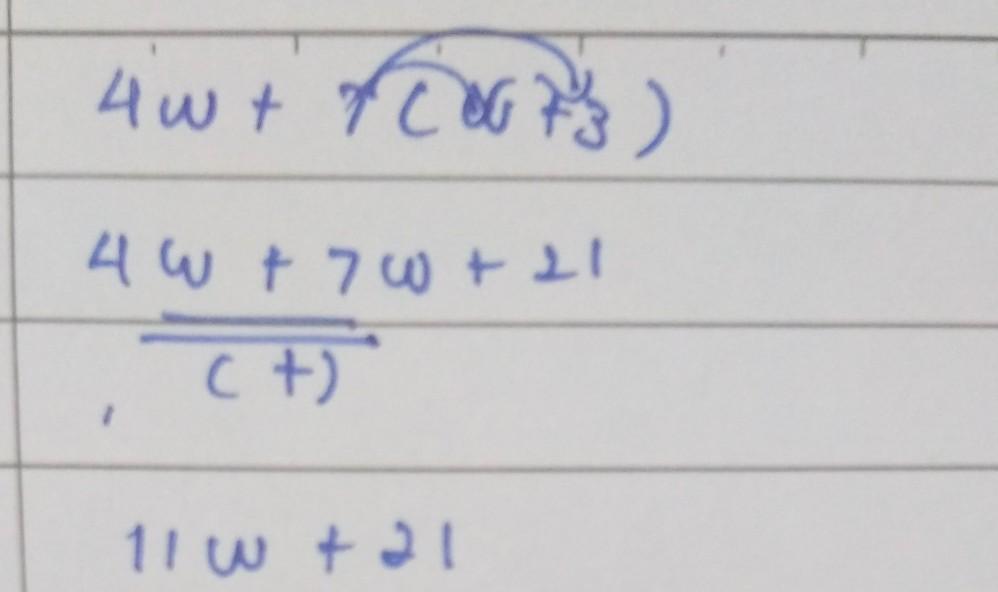 4w + 7(w+3)
4w + 7w + 21
(+)
11w + 21